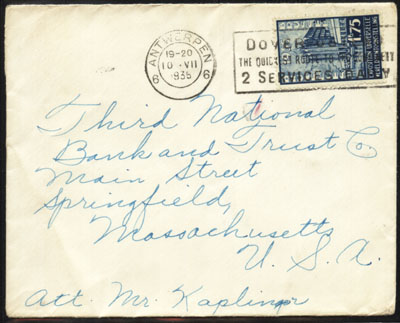 ANTWERPEN
19-20
10 · VII
1935
6 6
DOVER
THE QUICKEST ROUTE
2 SERVICES DAILY
1F75
Third National
Bank and Trust Co
Main Street
Springfield,
Massachusetts
U. S. A.
Att. Mr. Kaplinger